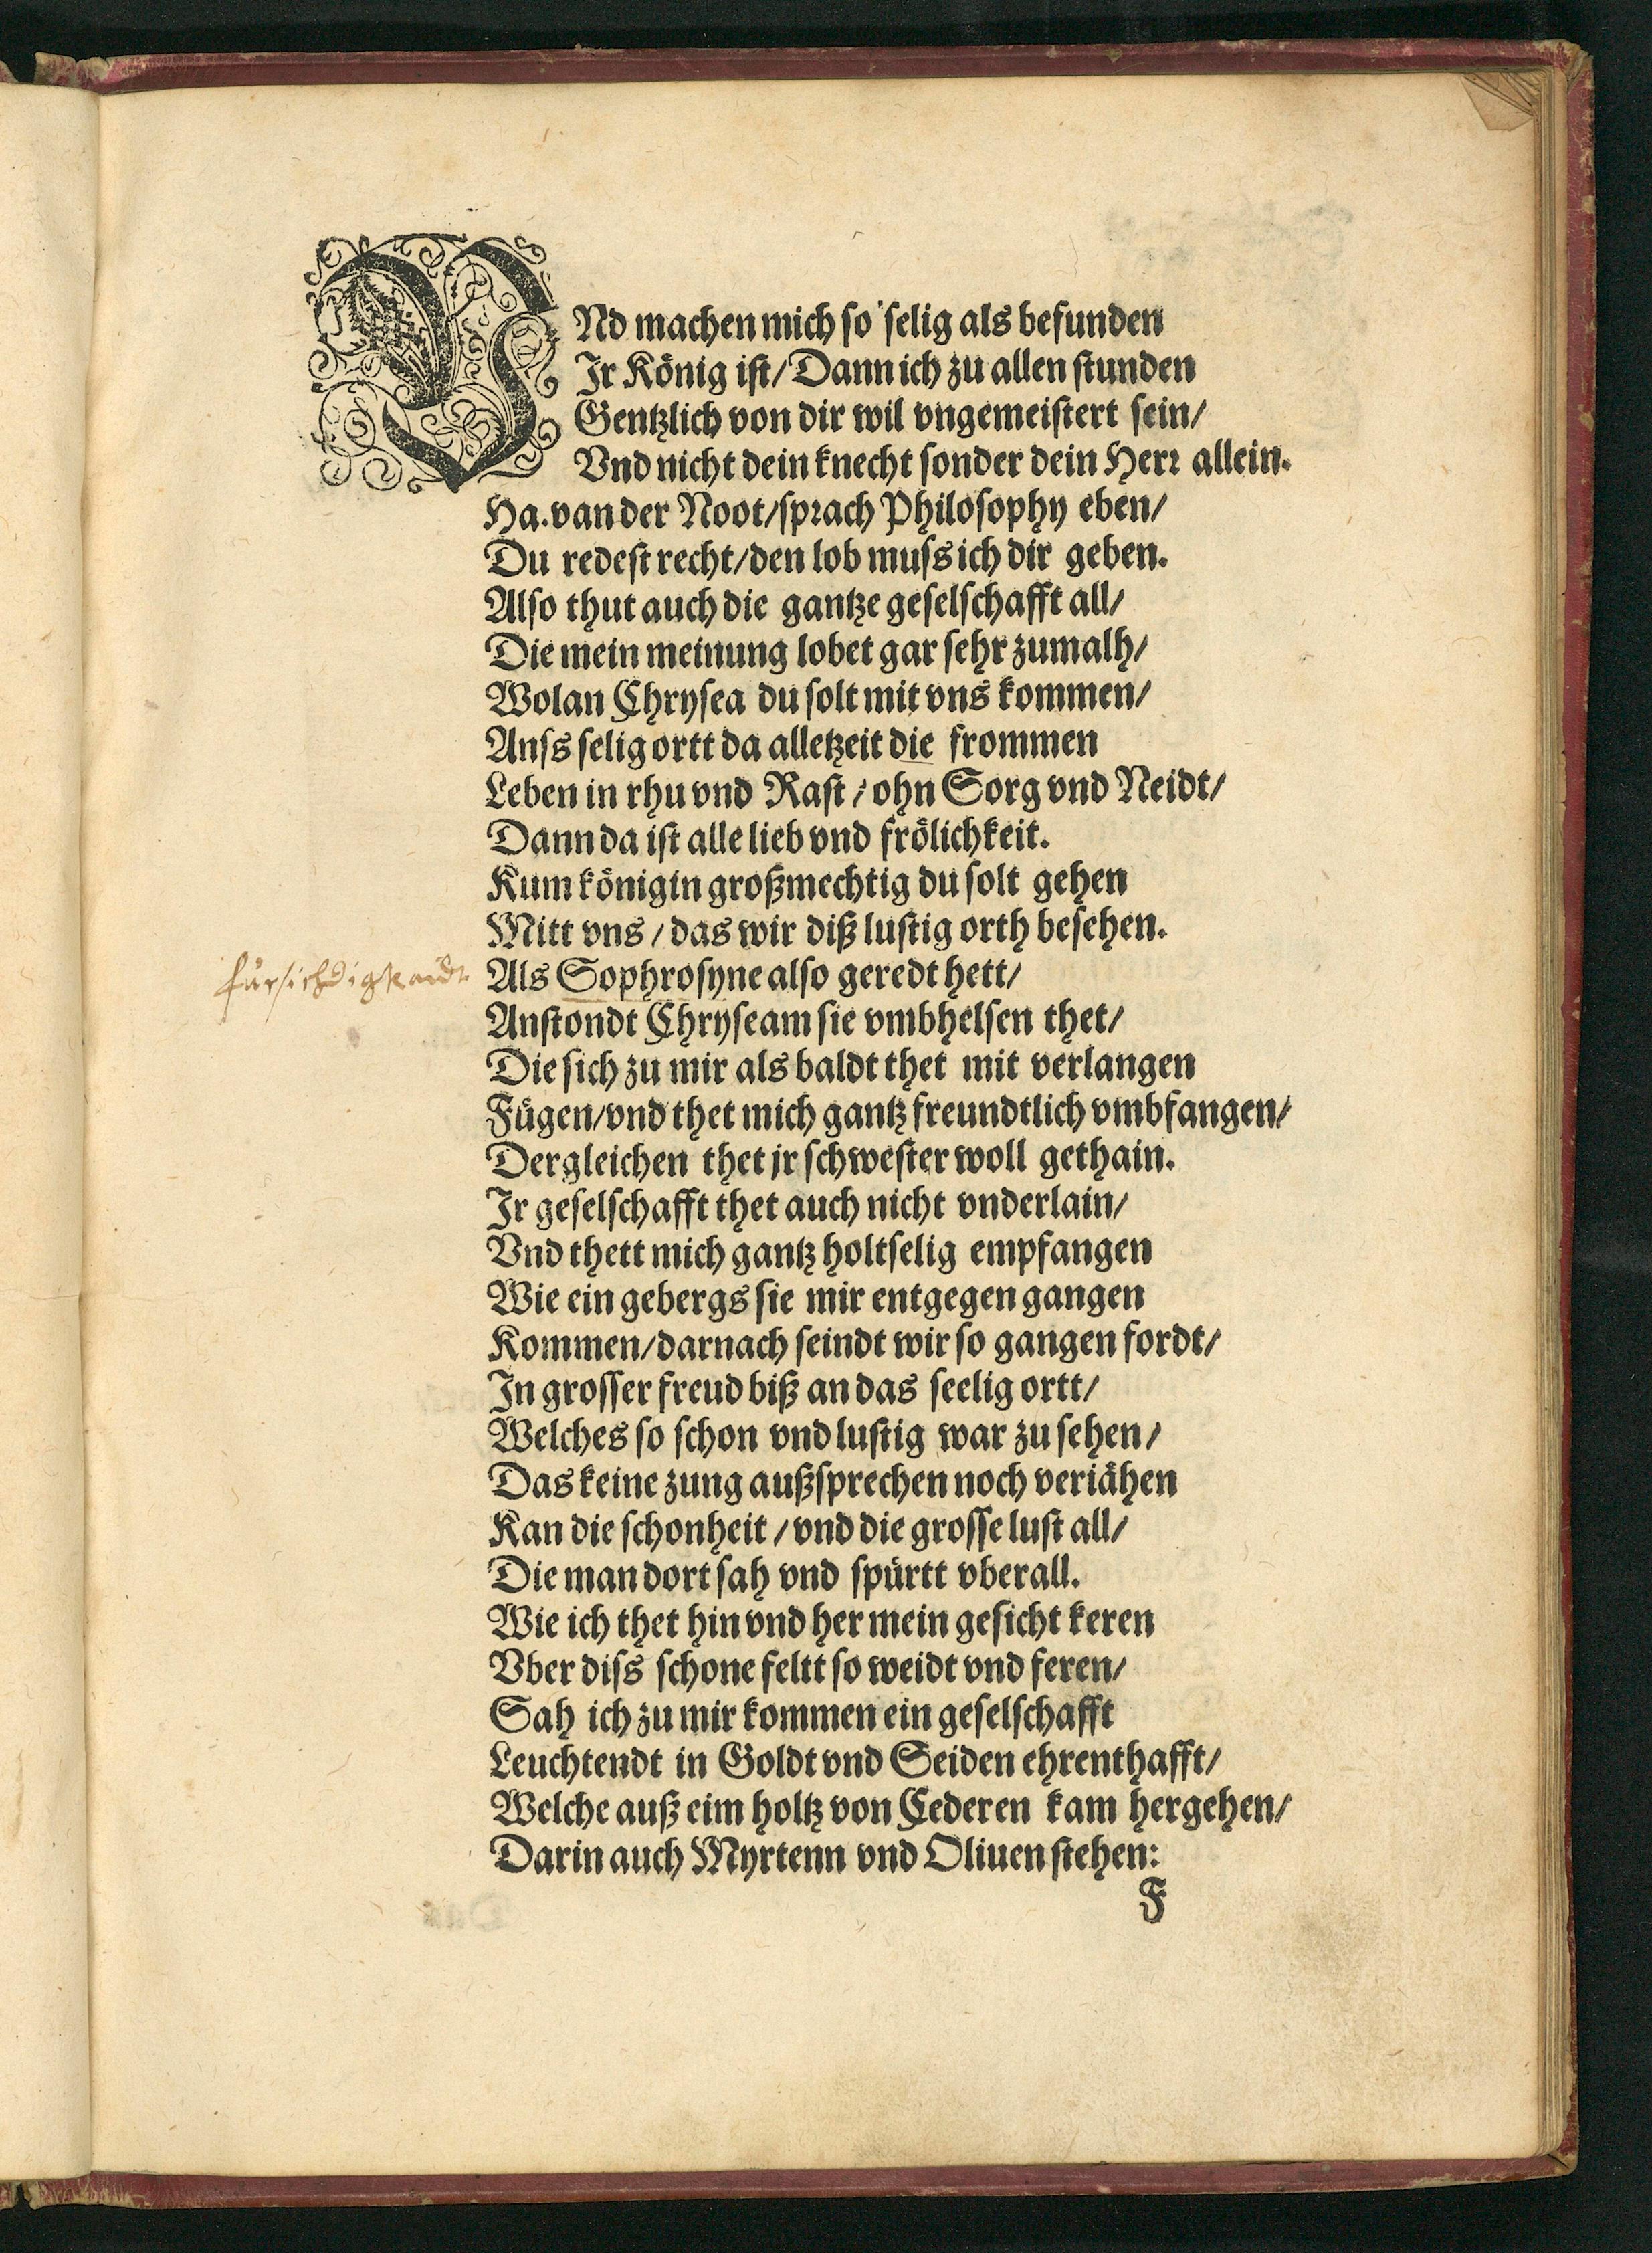 VNd machen mich so selig als befunden
Ir König ist/ Dann ich zu allen stunden
Gentzlich von dir wil vngemeistert sein/
Vnd nicht dein knecht sonder dein Herr allein.
Ha. van der Noot/ sprach Philosophy eben/
Du redest recht/ den lob muss ich dir geben.
Also thut auch die gantze geselschafft all/
Die mein meinung lobet gar sehr zumalh/
Wolan Chrysea du solt mit vns kommen/
Anss selig ortt da alletzeit die frommen
Leben in rhu vnd Rast/ ohn Sorg vnd Neidt/
Dann da ist alle lieb vnd frölichkeit.
Kum königin großmechtig du solt gehen
Mitt vns/ das wir diß lustig orth besehen.
fürsichdigkaidt
Als Sophrosyne also geredt hett/
Anstondt Chryseam sie vmbhelsen thet/
Die sich zu mir als baldt thet mit verlangen
Fügen/ vnd thet mich gantz freundtlich vmbfangen/
Dergleichen thet jr schwester woll gethain.
Ir geselschafft thet auch nicht vnderlain/
Vnd thett mich gantz holtselig empfangen
Wie ein gebergs sie mir entgegen gangen
Kommen/ darnach seindt wir so gangen fordt/
In grosser freud biß an das seelig ortt/
Welches so schon vnd lustig war zu sehen/
Das keine zung außsprechen noch veriähen
Kan die schonheit/ vnd die grosse lust all/
Die man dort sah vnd spürtt vberall.
Wie ich thet hin vnd her mein gesicht keren
Vber diss schone feltt so weidt vnd feren/
Sah ich zu mir kommen ein geselschafft
Leuchtendt in Goldt vnd Seiden ehrenthafft/
Welche auß eim holtz von Cederen kam hergehen/
Darin auch Myrtenn vnd Oliuen stehen:
F